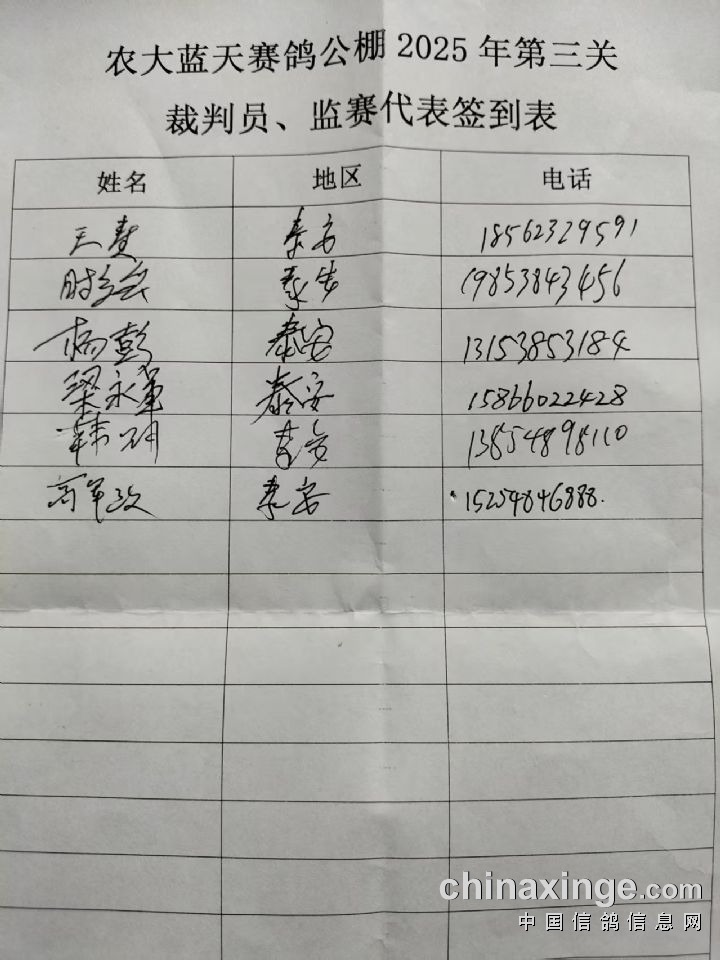 农大蓝天赛鸽公棚2025年第三关
裁判员、监赛代表签到表
姓名 地区 电话
泰安 18562329591
泰安 19853843456
杨彭 泰安 13153853184
梁永军 泰安 15866022428
韩明 泰安 13854898110
高军政 泰安 15254846888.
chinaxinge.com
中国信鸽信息网